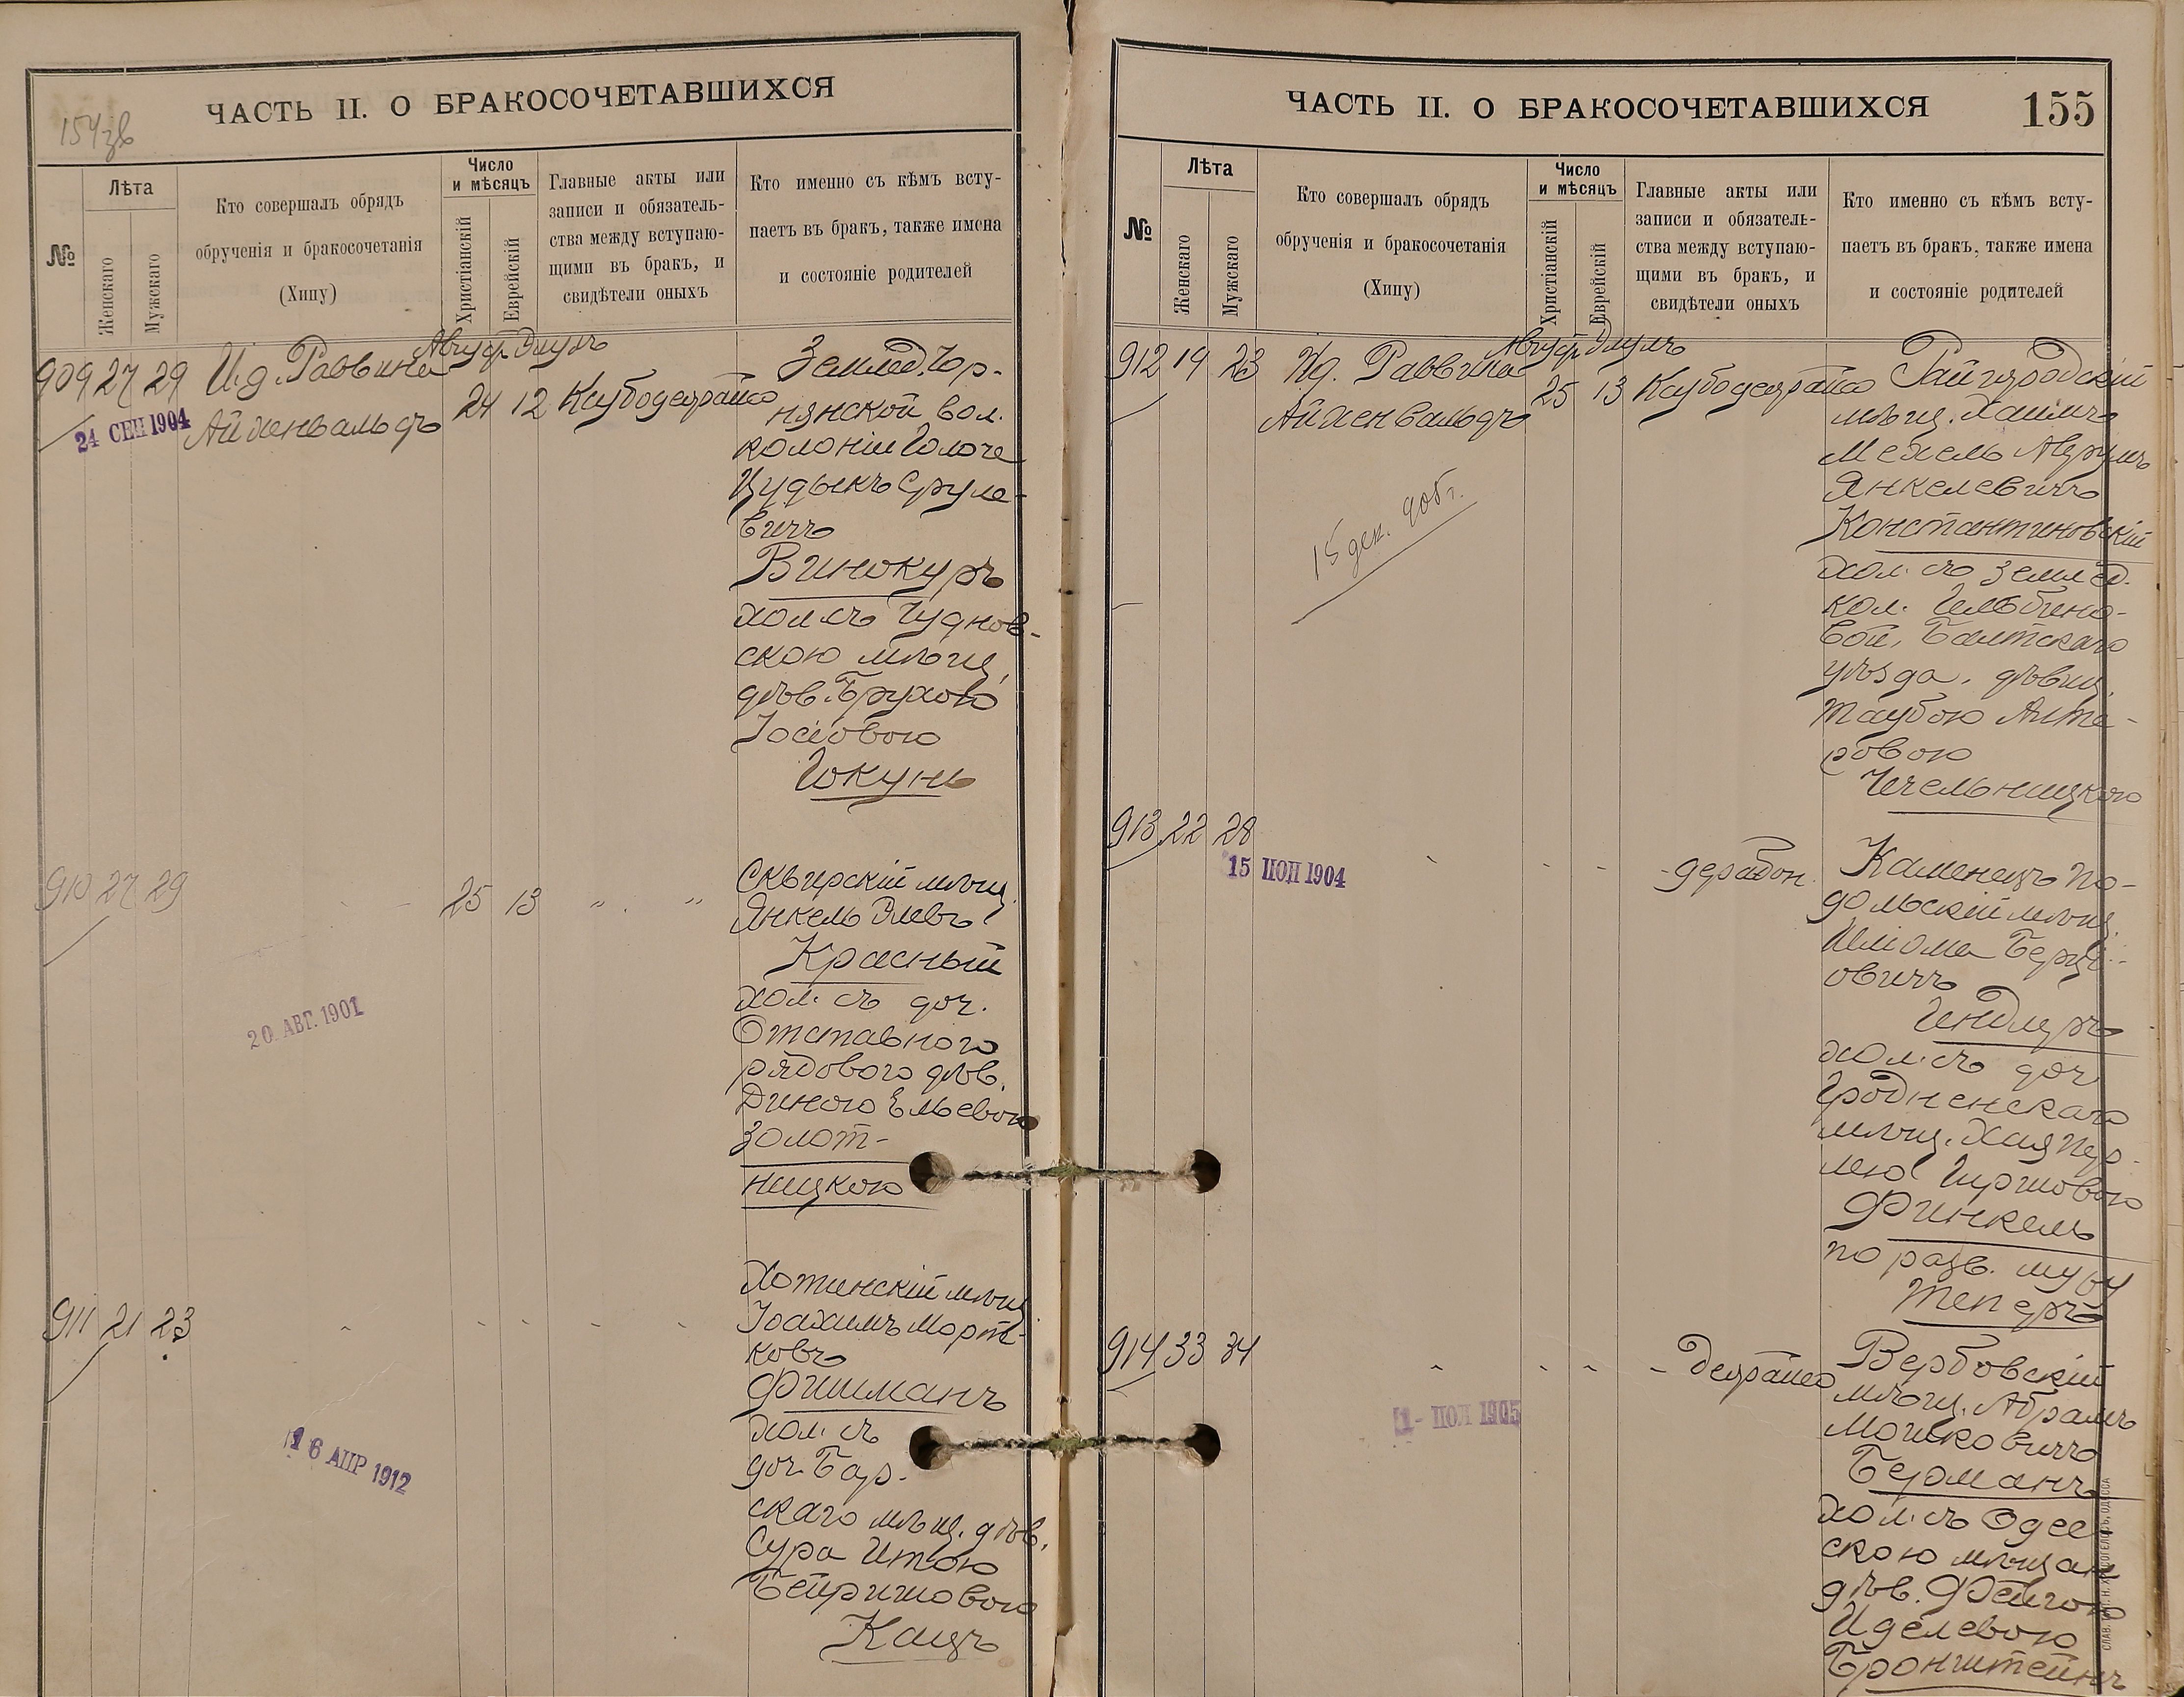 ЧАСТЬ II. О БРАКОСОЧЕТАВШИХСЯ
154зв
№
Лѣта
Женскаго
Мужскаго
Кто совершалъ обрядъ
обрученія и бракосочетанія
(Хипу)
Число
и мѣсяцъ
Христіанскій
Еврейскій
Главные акты или
записи и обязатель-
ства между вступаю-
щими въ бракъ, и
свидѣтели оныхъ
Кто именно съ кѣмъ всту-
паетъ въ бракъ, также имена
и состояніе родителей
909 27 29 И.д. Раввина
Айхенвальдъ
Август Элулъ
24 12
24 СЕН 1904
Землед.
нянской вол.
колоніи
Сруле-
вичъ
Винокуръ
хол. съ Чуднов-
скою мѣщ.
дѣв. Брухою
Іосіовою
Гокунь
910 27 29
25 13 " "
20 АВГ. 1901
Сквирскій мѣщ.
Янкель Элевъ
Красный
хол. съ доч.
Отставного
рядового дѣв.
Диною Ельевою
Золот-
ницкою
911 21 23
16 АПР 1912
Хотинскій мѣщ.
Іоахимъ Морт-
ковъ
Фишманъ
хол. съ
доч. Бар-
скаго мѣщ. дѣв.
Сура Итою
Бейришовою
Кацъ
ЧАСТЬ II. О БРАКОСОЧЕТАВШИХСЯ
155
№
Лѣта
Женскаго
Мужскаго
Кто совершалъ обрядъ
обрученія и бракосочетанія
(Хипу)
Число
и мѣсяцъ
Христіанскій
Еврейскій
Главные акты или
записи и обязатель-
ства между вступаю-
щими въ бракъ, и
свидѣтели оныхъ
Кто именно съ кѣмъ всту-
паетъ въ бракъ, также имена
и состояніе родителей
912 19 23 Ид. Раввина
Айхенвальдъ
Август Элулъ
25 13
15 дек. 905 г.
Райгородскій
мѣщ. Хаимъ
Мехель Аврумъ
Янкелевичъ
Константиновскій
хол. съ землед.
кол. Гельбино-
вой, Балтскаго
уѣзда, дѣвиц.
Таубою Алте-
ровою
Чечельницкою
913 22 28
15 1904
Каменецъ По-
дольскій мѣщ.
Шліома Берц-
овичъ
Гендлеръ
хол. съ доч.
Гродненскаго
мѣщ. Хая Пер-
лею Гиршовою
Финкель
по разв. мужу
Теперъ
914 33 34
1905
Вербовскій
мѣщ. Абрамъ
Мошковичъ
Берманъ
хол. съ Одес-
скою мѣщан
дѣв. Фейгою
Иделевою
Бронштейнъ